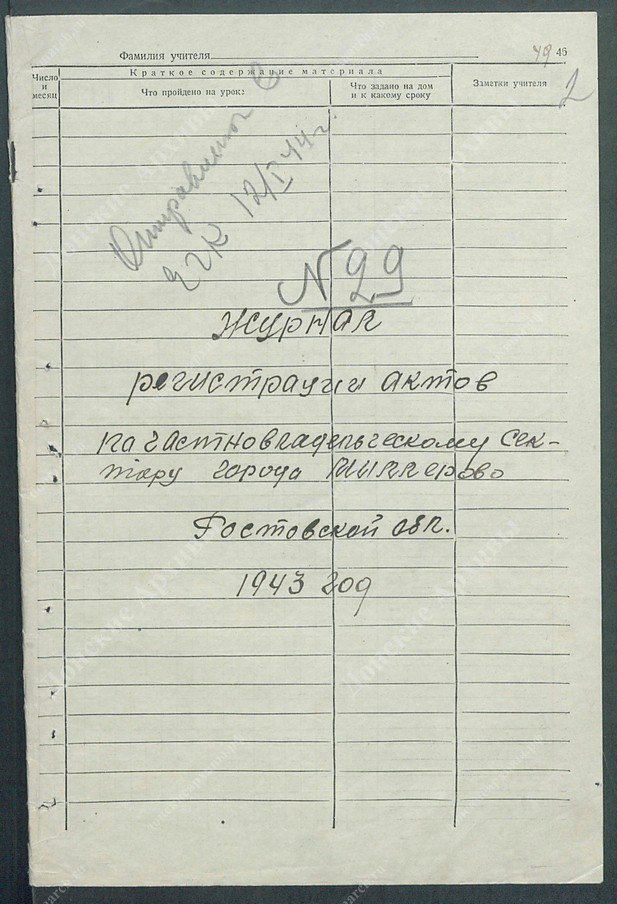 Фамилия учителя
49 45
Число и месяц
Краткое содержание материала
Заметки учителя
2
Что пройдено на уроке
Что задано на дом и к какому сроку
Отправлено
ЧГК 12/I 44 г.
N 29
Журнал
регистрации актов
по частновладельческому сек-
тору города Миллерово
Ростовской обл.
1943 год